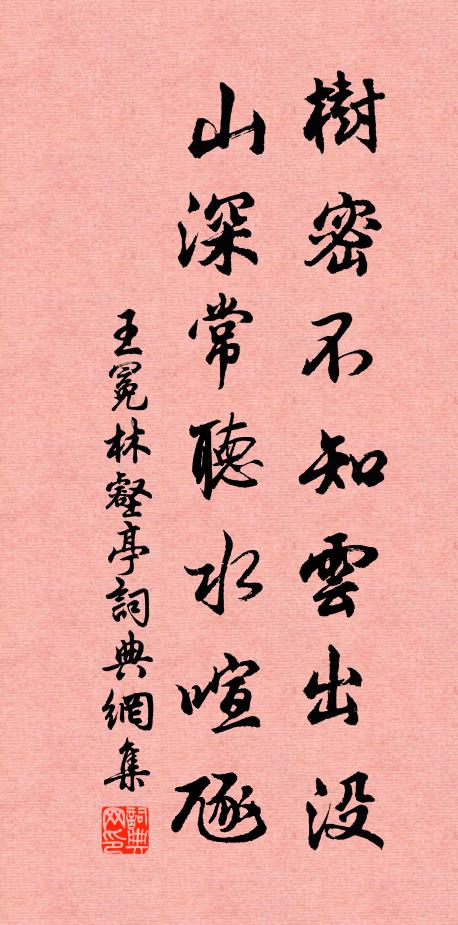 樹密不知雲出没
山深常聽水喧豗
王冕林壑亭詞典網集
詞典
网印